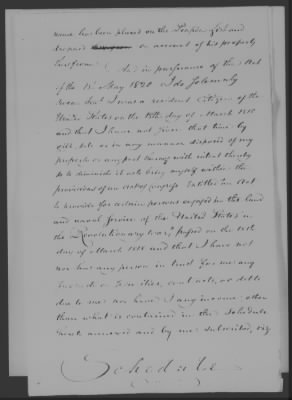 name has been placed on the Pension list and
dropped on account of his property
therefrom. And in pursuance of the Act
of the 1st May 1820 I do Solemnly
Swear that I was a resident Citizen of the
United States on the 18th day of March 1818
and that I have not since that time by
gift, sale or in any manner disposed of my
property or any part thereof with intent thereby
so to diminish it as to bring myself within the
provisions of an act of Congress Entitled "an Act
to provide for certain persons engaged in the land
and naval Service of the United States in
the Revolutionary war," passed on the 18th
day of March 1818 and that I have not
nor has any person in trust for me any
Securities, contracts, or debts
due to me: nor have I any income other
than what is contained in the schedule
hereto annexed and by me subscribed, viz
Schedule